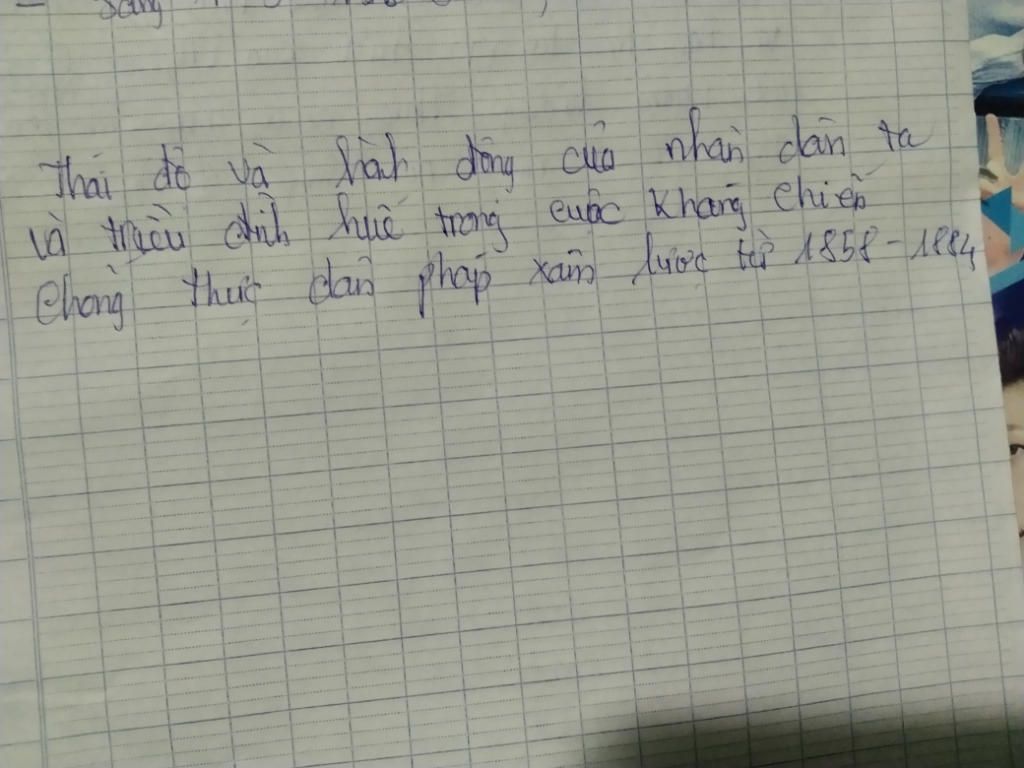 Thái độ và hành động của nhân dân ta
và triều đình huế trong cuộc kháng chiến
chống thực dân pháp xâm lược từ 1858 - 1884